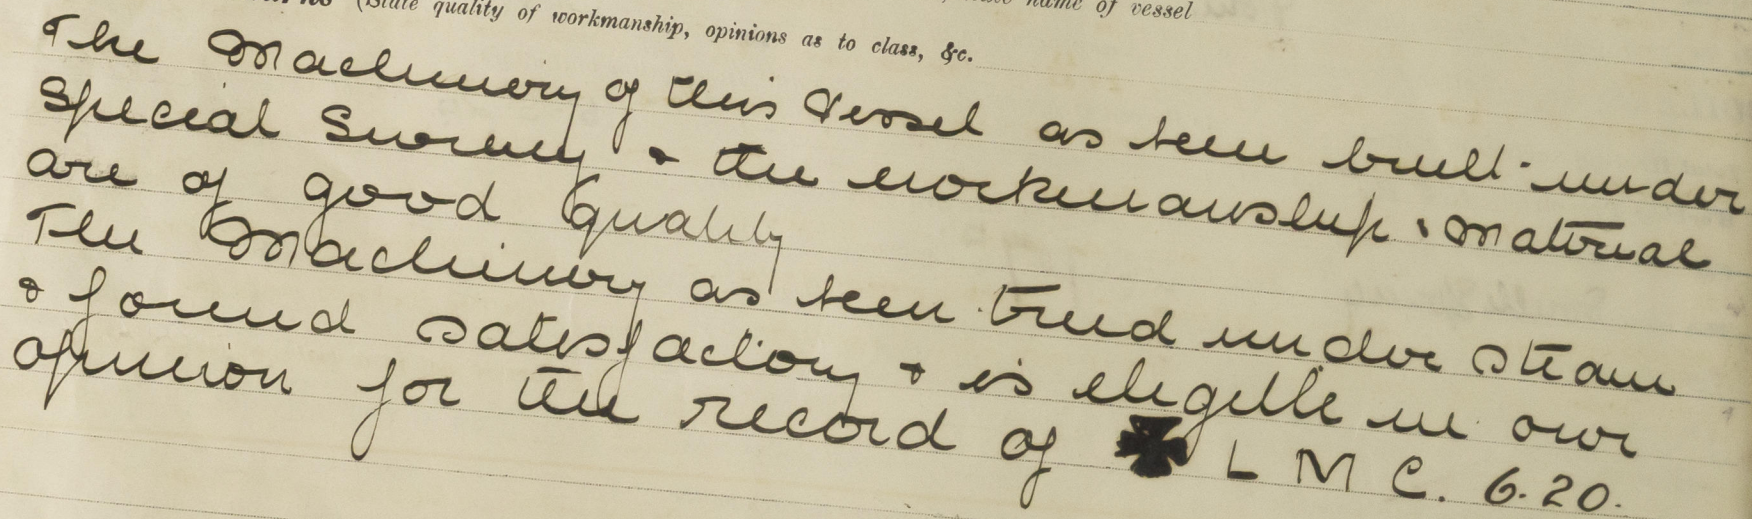 (State quality of workmanship, opinions as to class, &c. name of vessel
The Machinery of this Vessel as been built under
Special Survey & the workmanship & Material
are of good quality
The Machinery as been tried under steam
& found satisfactory & is eligible in our
opinion for the record of ✠ L M C. 6.20.